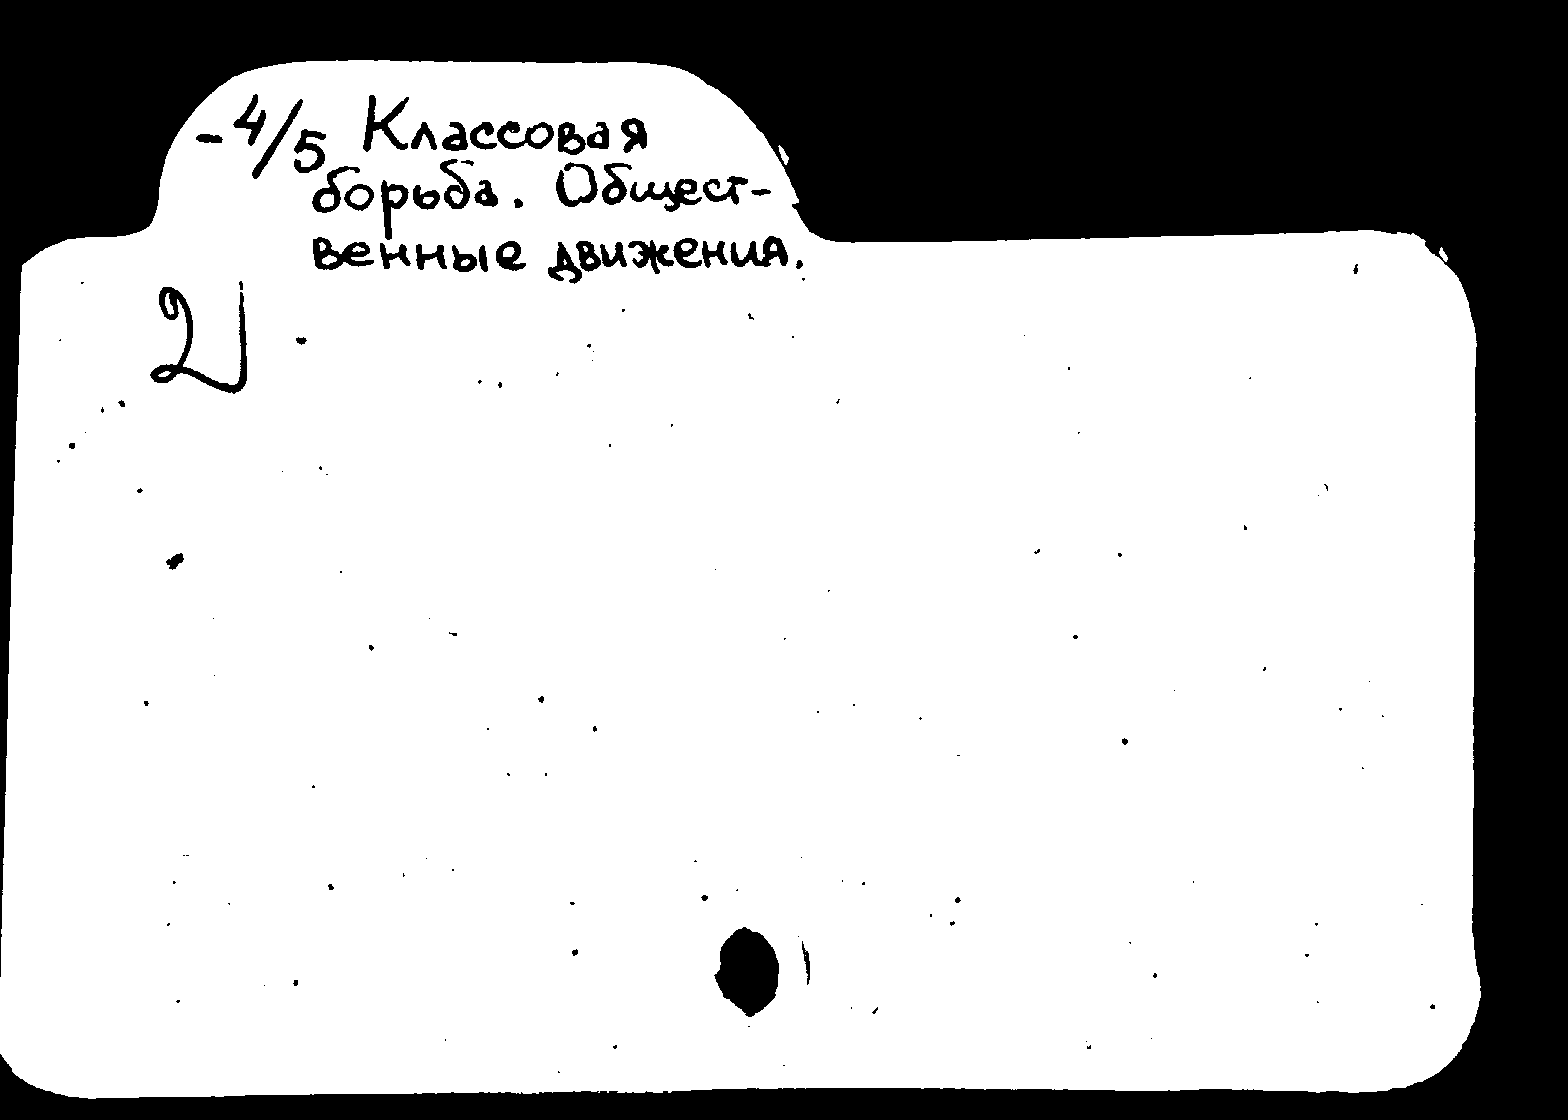 -4/5 Классовая
борьба. Общест-
венные движения.
2